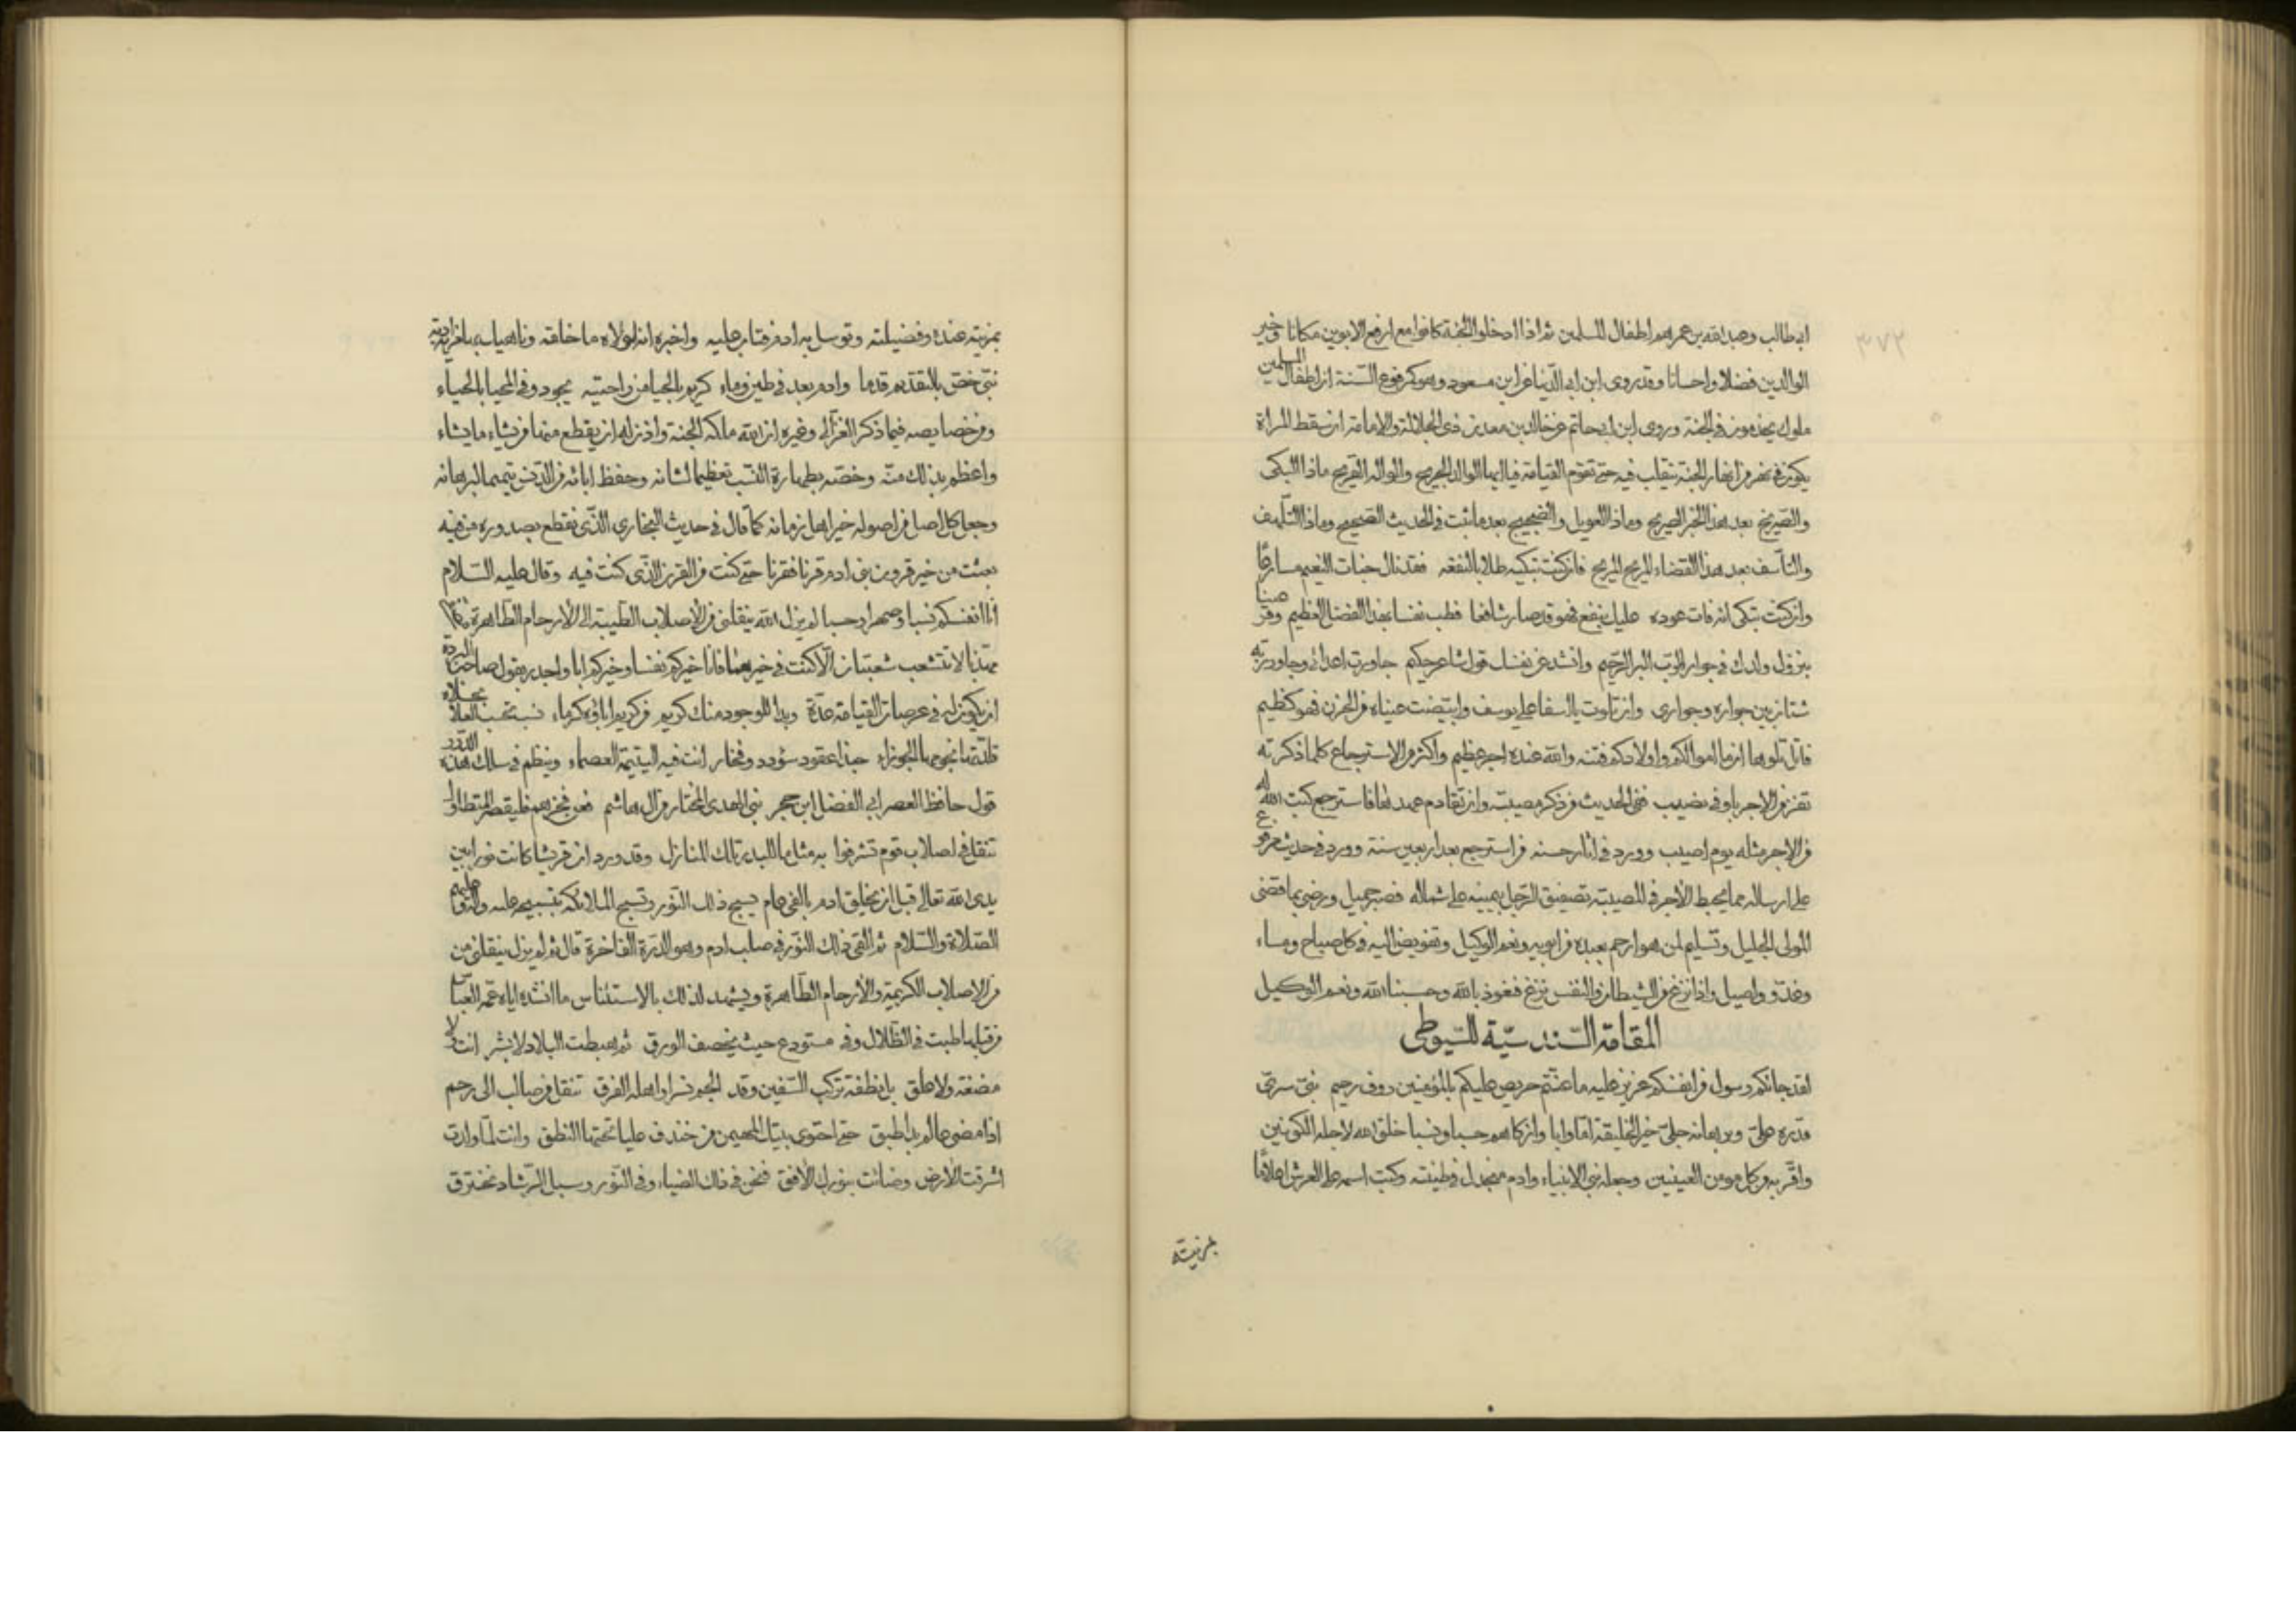 ابى طالب وعبد الله بن عمر هم اطفال المسلمين ثم اذا ادخلوا الجنة كانوا مع ارفع الابوين مكانا وخير
الوالدين فضلا واحسانا وقد روى ابن ابى الدنيا عن ابن مسعود وهو كمرفوع السنة ان اطفال المسلمين
ملوك يخدمون فى الجنة وروى ابن ابى حاتم عن خالد بن معدان ذى الجلالة والامامة ان سقط المراة
يكون فى نهر من انهار الجنة يتقلب فيه حتى تقوم القيامة فيا ايها الوالد الجريح والواله القريح ماذا البكى
والصريخ بعد هذا الخبر الصريح وماذا العويل والضجيج بعد ما ثبت فى الحديث الصحيح وماذا التلهف
والتاسف بعد هذا القضاء المريح فان كنت تبكيه طلابا لنفعه فقد نال جنات النعيم مسارعا
وان كنت تبكى انه فات عوده عليك بنفع فهو قد صار شافعا فطب نفسا بهذا الفضل العظيم وقر عينا
بنزول ولدك فى جوار الرب البر الرحيم وانشد عن نفسك قول شاعر حكيم جاورت اعدائى وجاور ربه
شتان بين جواره وجوارى وان تلوت يا اسفا على يوسف وابيضت عيناه من الحزن فهو كظيم
فاتل تلوها انما اموالكم واولادكم فتنة والله عنده اجر عظيم واكثر من الاسترجاع كلما ذكرته
تفز من الاجر باوفى نصيب ففى الحديث من ذكر مصيبته وان تقادم عهدها فاسترجع كتب الله له
من الاجر مثله يوم اصيب وورد فى اثار حسنه من استرجع بعد اربعين سنة وورد فى حديث مرفوع
على ارساله مما يحبط الاجر فى المصيبة تصفيق الرجل بيمينه على شماله فصبر جميل ورضى بما قضى
المولى الجليل وتسليم لمن هو ارحم بعبده من ابويه ونعم الوكيل وتفويض اليه فى كل صباح ومساء
وغدو واصيل واذا نزغ من الشيطان والنفس نزغ فنعوذ بالله وحسبنا الله ونعم الوكيل
المقامة السندسية للسيوطى
لقد جائكم رسول من انفسكم عزيز عليه ما عنتم حريص عليكم بالمؤمنين روف رحيم نبى سرى
قدره على وبرهانه جلى خير الخليقة اما وابا وازكاهم حسبا ونسبا خلق الله لاجله الكونين
واقر به من كل مومن العينين وجعله نبى الانبياء وادم منجدل فى طينته وكتب اسمه على العرش اعلاما
بمزيته
بمزيته عنده وفضيلته وتوسل به ادم فتاب عليه واخبره انه لولاه ما خلقه وناهيك بها من مزية
نبى خص بالتقديم قدما وادم بعد فى طين وماء كريم بالحيا من راحتيه يجود وفى المحيا بالحياء
ومن خصايصه فيما ذكر الغزالى وغيره ان الله ملكه الجنة واذن له ان يقطع منها من يشاء ما يشاء
واعظم بذلك منة وخصه بطهارة النسب تعظيما لشانه وحفظ ابائه من الدنس تتميما لبرهانه
وجعل كل اصل من اصوله خير اهل زمانه كما قال فى حديث البخارى الذى نقطع بصدوره من فيه
بعثت من خير قرون بنى ادم قرنا فقرنا حتى كنت من القرن الذى كنت فيه وقال عليه السلام
انا انفسكم نسبا وصهرا وحسبا لم يزل الله ينقلنى من الاصلاب الطيبة الى الارحام الطاهرة مصفى
مهذبا لا تتشعب شعبتان الا كنت فى خيرهما فانا خيركم نفسا وخيركم ابا واجدر بقول صاحب البردة
ان يكون لى فى عرصات القيامة عدة وبدا للوجود منك كريم من كريم اباؤه كرماء نسب تحسب العلا بحلاه
قلدتها نجومها الجوزاء حبذا عقود سؤدد وفخار انت فيه اليتيمة العصماء وينظم فى سلك هذه الدرر
قول حافظ العصر ابى الفضل ابن حجر نبى الهدى المختار من آل هاشم فعن فخرهم فليقصر المتطاول
تنقل فى اصلاب قوم تشرفوا به مثل ما للبدر تلك المنازل وقد ورد ان قريشا كانت نورا بين
يدى الله تعالى قبل ان يخلق ادم بالفى عام يسبح ذلك النور وتسبح الملائكة بتسبيحه عليه وعليهم
الصلاة والسلام ثم القى ذلك النور فى صلب ادم وهو الدرة الفاخرة قال ثم لم يزل ينقلنى من
من الاصلاب الكريمة والارحام الطاهرة ويشهد لذلك بالاستئناس ما انشده اياه عمه العباس
من قبلها طبت فى الظلال وفى مستودع حيث يخصف الورق ثم هبطت البلاد لا بشر انت ولا
مضغة ولا علق بل نطفة تركب السفين وقد الجم نسرا واهله الغرق تنقل من صالب الى رحم
اذا مضى عالم بدا طبق حتى احتوى بيتك المهيمن من خندف علياء تحتها النطق وانت لما ولدت
اشرقت الارض وضائت بنورك الافق فنحن فى ذلك الضياء وفى النور وسبل الرشاد نخترق